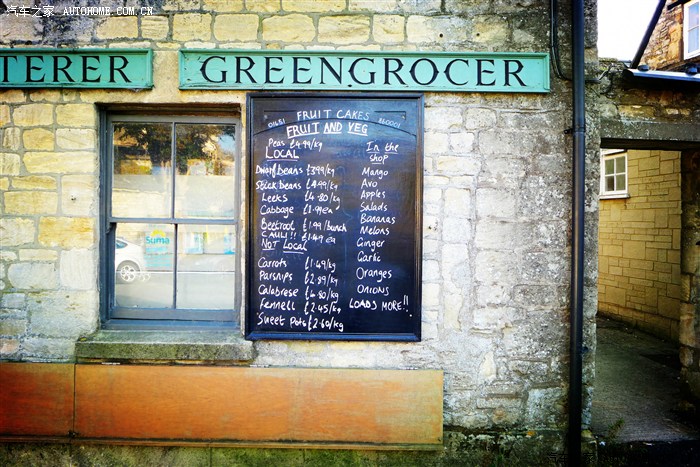 汽车之家 AUTOHOME.COM.CN
TERER
GREENGROCER
FRUIT CAKES
01451 860001
FRUIT AND VEG
Peas £4.99/kg
LOCAL
Dwarf beans £3.99/kg
Stick beans £4.99/kg
Leeks £4.80/kg
Cabbage £1.99 ea
Beetroot £1.99/bunch
CAULI!! £1.49 ea
NOT LOCAL
Carrots £1.49/kg
Parsnips £2.89/kg
Calabrese £4.80/kg
Fennell £2.45/kg
Sweet Pots £2.60/kg
In the
shop
Mango
Avo
Apples
Salads
Bananas
Melons
Ginger
Garlic
Oranges
Onions
LOADS MORE!!
Suma